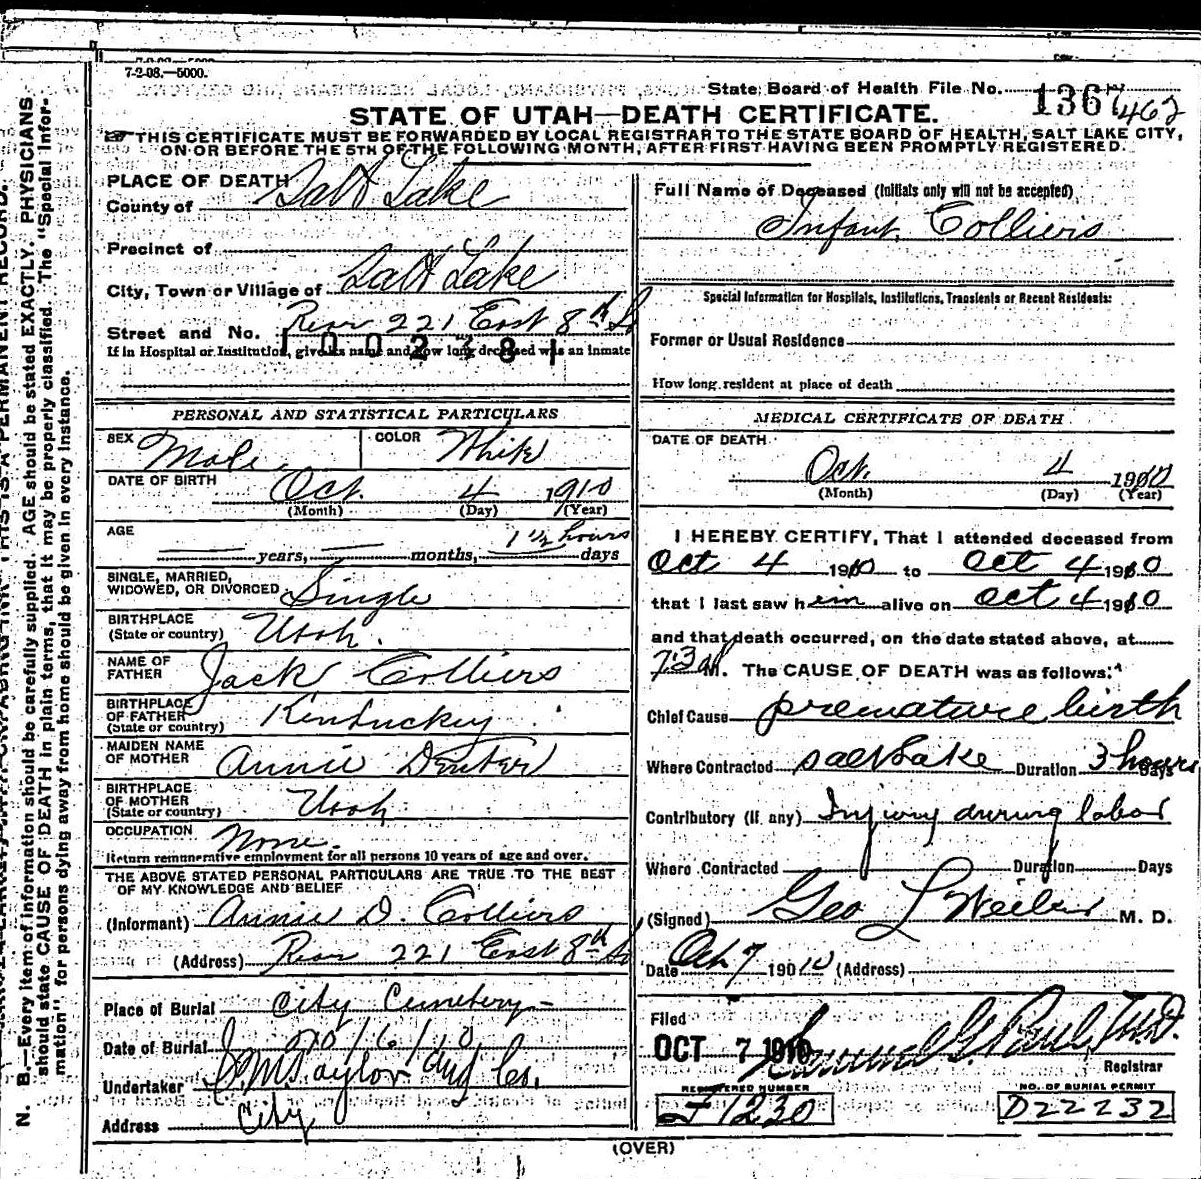 7-2-08.—5000.
State Board of Health File No. 1367 462
STATE OF UTAH—DEATH CERTIFICATE.
☞THIS CERTIFICATE MUST BE FORWARDED BY LOCAL REGISTRAR TO THE STATE BOARD OF HEALTH, SALT LAKE CITY,
ON OR BEFORE THE 5TH OF THE FOLLOWING MONTH, AFTER FIRST HAVING BEEN PROMPTLY REGISTERED.
N. B.—Every item of information should be carefully supplied. AGE should be stated EXACTLY. PHYSICIANS
should state CAUSE OF DEATH in plain terms, that it may be properly classified. The "Special Infor-
mation" for persons dying away from home should be given in every instance.
PLACE OF DEATH
County of Salt Lake
Precinct of
City, Town or Village of Salt Lake
Street and No. Rear 221 East 8th So
1002381
If in Hospital or Institution, give its name and how long deceased was an inmate
PERSONAL AND STATISTICAL PARTICULARS
SEX Male COLOR White
DATE OF BIRTH Oct. 4 1910
(Month) (Day) (Year)
AGE 1 1/2 hours
years, months, days
SINGLE, MARRIED,
WIDOWED, OR DIVORCED Single
BIRTHPLACE
(State or country) Utah.
NAME OF
FATHER Jack Colliers
BIRTHPLACE
OF FATHER
(State or country) Kentuckey
MAIDEN NAME
OF MOTHER Annie Denter
BIRTHPLACE
OF MOTHER
(State or country) Utah
OCCUPATION None.
Return remunerative employment for all persons 10 years of age and over.
THE ABOVE STATED PERSONAL PARTICULARS ARE TRUE TO THE BEST
OF MY KNOWLEDGE AND BELIEF
(Informant) Annie D. Colliers
(Address) Rear 221 East 8th So
Place of Burial City Cemetery
Date of Burial 10/6/10
Undertaker S. M. Taylor Und Co.
Address City
Full Name of Deceased (Initials only will not be accepted)
Infant Colliers
Special Information for Hospitals, Institutions, Transients or Recent Residents:
Former or Usual Residence
How long resident at place of death
MEDICAL CERTIFICATE OF DEATH
DATE OF DEATH
Oct. 4 1910
(Month) (Day) (Year)
I HEREBY CERTIFY, That I attended deceased from
Oct 4 1910 to Oct 4 1910
that I last saw hem alive on Oct 4 1910
and that death occurred, on the date stated above, at
M. The CAUSE OF DEATH was as follows:
Chief Cause premature birth
Where Contracted Salt Lake Duration 3 hours Days
Contributory (if any) Injury during labor
Where Contracted Duration Days
(Signed) Geo L Weiler M. D.
Date Oct 7 1910 (Address)
Filed
OCT 7 1910 Samuel G. Paul, M.D.
Registrar
REGISTERED NUMBER NO. OF BURIAL PERMIT
J 1230 D22232
(OVER)